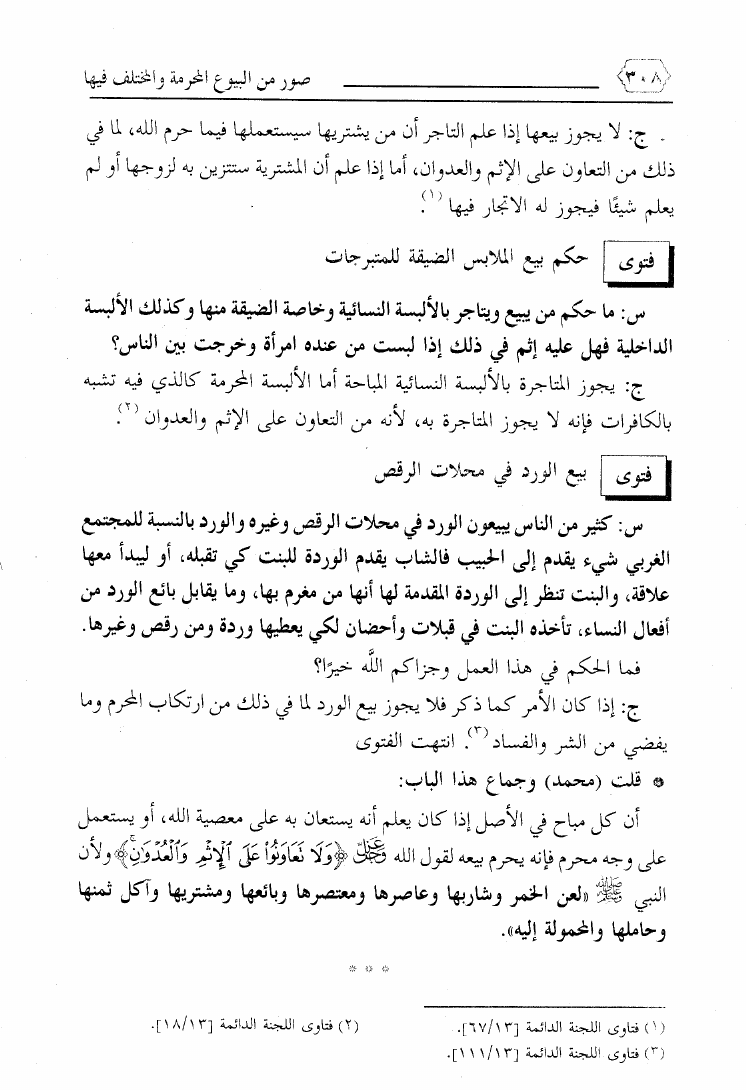 ٣٠٨ صور من البيوع المحرمة والمختلف فيها
ج: لا يجوز بيعها إذا علم التاجر أن من يشتريها سيستعملها فيما حرم الله، لما في
ذلك من التعاون على الإثم والعدوان، أما إذا علم أن المشترية ستتزين به لزوجها أو لم
يعلم شيئًا فيجوز له الاتجار فيها (١).
فتوى حكم بيع الملابس الضيقة للمتبرجات
س: ما حكم من يبيع ويتاجر بالألبسة النسائية وخاصة الضيقة منها وكذلك الألبسة
الداخلية فهل عليه إثم في ذلك إذا لبست من عنده امرأة وخرجت بين الناس؟
ج: يجوز المتاجرة بالألبسة النسائية المباحة أما الألبسة المحرمة كالذي فيه تشبه
بالكافرات فإنه لا يجوز المتاجرة به، لأنه من التعاون على الإثم والعدوان (٢).
فتوى بيع الورد في محلات الرقص
س: كثير من الناس يبيعون الورد في محلات الرقص وغيره والورد بالنسبة للمجتمع
الغربي شيء يقدم إلى الحبيب فالشاب يقدم الوردة للبنت كي تقبله، أو ليبدأ معها
علاقة، والبنت تنظر إلى الوردة المقدمة لها أنها من مغرم بها، وما يقابل بائع الورد من
أفعال النساء، تأخذه البنت في قبلات وأحضان لكي يعطيها وردة ومن رقص وغيرها.
فما الحكم في هذا العمل وجزاكم اللَّه خيرًا؟
ج: إذا كان الأمر كما ذكر فلا يجوز بيع الورد لما في ذلك من ارتكاب المحرم وما
يفضي من الشر والفساد (٣). انتهت الفتوى
* قلت (محمد) وجماع هذا الباب:
أن كل مباح في الأصل إذا كان يعلم أنه يستعان به على معصية الله، أو يستعمل
على وجه محرم فإنه يحرم بيعه لقول الله عز وجل ﴿وَلَا تَعَاوَنُوا۟ عَلَى ٱلْإِثْمِ وَٱلْعُدْوَٰنِ ۚ﴾ ولأن
النبي ﷺ «لعن الخمر وشاربها وعاصرها ومعتصرها وبائعها ومشتريها وآكل ثمنها
وحاملها والمحمولة إليه».
* * *
(١) فتاوى اللجنة الدائمة [٦٧/١٣]. (٢) فتاوى اللجنة الدائمة [١٨/١٣].
(٣) فتاوى اللجنة الدائمة [١١١/١٣].